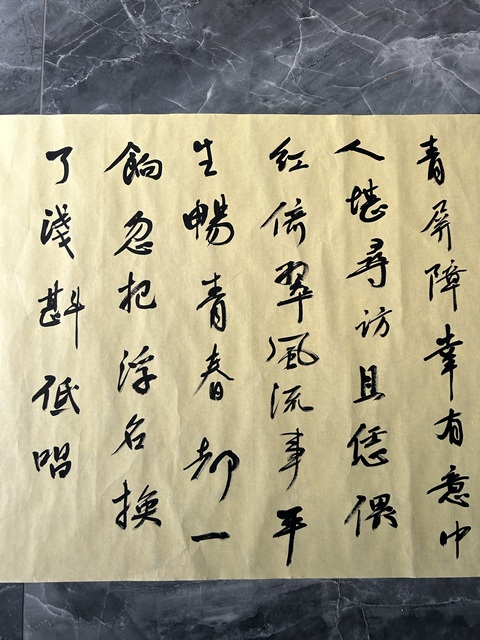 青屏障幸有意中
人堪尋访且恁偎
红倚翠風流事平
生暢青春都一
餉忽把浮名换
了淺斟低唱